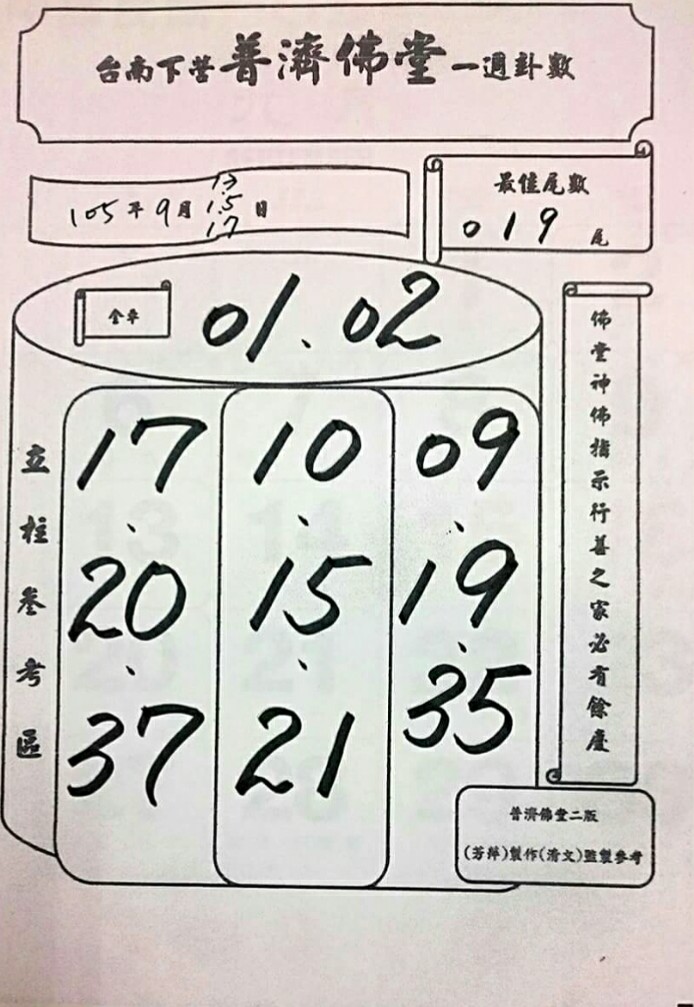 台南下營普濟佛堂一週卦數
13
105年9月15日
17
最佳尾數
019尾
全車
01.02
立柱參考區
17 10 09
20 15 19
37 21 35
佛堂神佛指示行善之家必有餘慶
普濟佛堂二版
(芳萍)製作(清文)監製參考